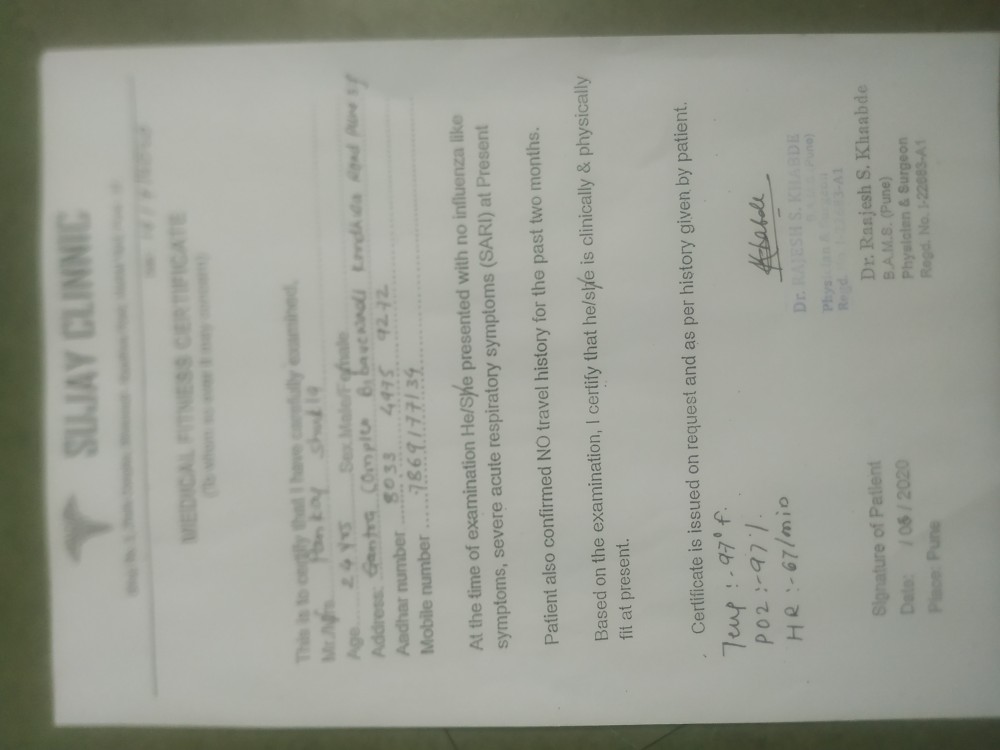 SUJAY CLINNIC
MEDICAL FITNESS CERTIFICATE
This is to certify that I have carefully examined,
Pankaj Shukla
Age 24 yrs Sex.Male/Female
Address:
Aadhar number 8033 4975 9272
Mobile number 7869177134
At the time of examination He/She presented with no influenza like
symptoms, severe acute respiratory symptoms (SARI) at Present
Patient also confirmed NO travel history for the past two months.
Based on the examination, I certify that he/she is clinically & physically
fit at present.
Certificate is issued on request and as per history given by patient.
Temp :- 97° f.
PO2 :- 97 %.
HR :- 67/min
Dr. RAJESH S. KHABDE
Regd.
Dr. Raajesh S. Khaabde
B.A.M.S. (Pune)
Physician & Surgeon
Regd. No. I-22683-A1
Signature of Patient
Date: / 05 / 2020
Place: Pune